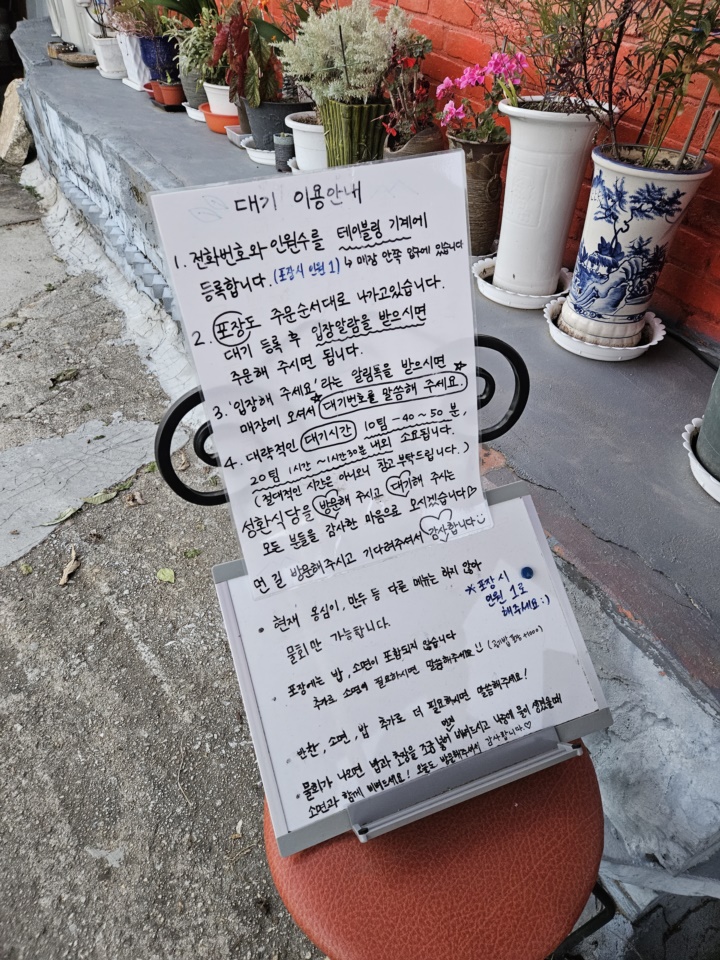 대기 이용안내
1. 전화번호와 인원수를 테이블링 기계에
등록합니다. (포장시 인원 1) ↳ 매장 안쪽 입구에 있습니다
2. 포장도 주문순서대로 나가고있습니다.
대기 등록 후 입장알람을 받으시면
주문해 주시면 됩니다.
3. '입장해 주세요'라는 알림톡을 받으시면
매장에 오셔서 ☆대기번호를 말씀해 주세요.☆
4. 대략적인 대기시간 10팀 - 40 ~ 50분,
20팀 1시간 ~ 1시간30분 내외 소요됩니다.
(절대적인 시간은 아니오니 참고 부탁드립니다.)
성환식당을 방문해 주시고 대기해 주시는
모든 분들을 감사한 마음으로 모시겠습니다♡
먼 길 방문해주시고 기다려주셔서 감사합니다
• 현재 옹심이, 만두 등 다른 메뉴는 하지 않아
물회만 가능합니다.
※ 포장 시
인원 1로
해주세요 :)
• 포장에는 밥, 소면이 포함되지 않습니다
추가로 소면이 필요하시면 말씀해주세요
• 반찬, 소면, 밥 추가로 더 필요하시면 말씀해주세요!
• 물회가 나오면 밥과 초장을 조금 넣어 비벼드시고 나중에 물이 생겼을때
소면과 함께 비벼드세요! 오늘도 방문해주셔서 감사합니다.♡